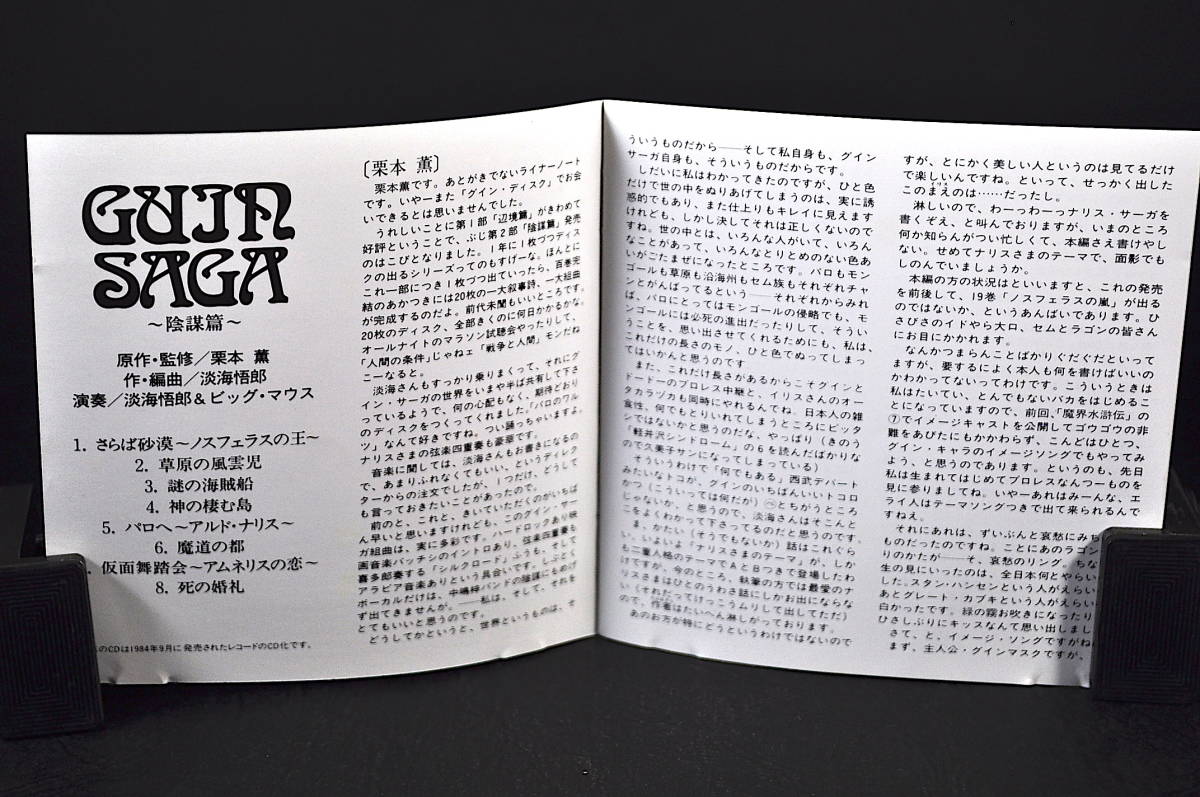 GUIN
SAGA
～陰謀篇～
原作・監修／栗本 薫
作・編曲／淡海悟郎
演奏／淡海悟郎＆ビッグ・マウス
1. さらば砂漠～ノスフェラスの王～
2. 草原の風雲児
3. 謎の海賊船
4. 神の棲む島
5. パロへ～アルド・ナリス～
6. 魔道の都
. 仮面舞踏会～アムネリスの恋～
8. 死の婚礼
のCDは1984年9月に発売されたレコードのCD化です。
〔栗本 薫〕
栗本薫です。あとがきでないライナーノート
です。いやーまた「グイン・ディスク」でお会
いできるとは思いませんでした。
うれしいことに第1部「辺境篇」がきわめて
好評ということで、ぶじ第2部「陰謀篇」発売
のはこびとなりました。1年に1枚づつディス
クの出るシリーズってのもすげーな。ほんとに
これ一部につき1枚づつ出ていったら、百巻完
結のあかつきには20枚の一大叙事詩、一大組曲
が完成するのだよ。前代未聞もいいところです。
20枚のディスク、全部きくのに何日かかるかな。
オールナイトのマラソン試聴会やったりして、
「人間の条件」じゃねェ「戦争と人間」モンだね
こーなると。
淡海さんもすっかり乗りまくって、それにグ
イン・サーガの世界をいまや半ば共有して下さ
っているようで、何の心配もなく、期待どおり
のディスクをつくってくれました。「パロのワル
ツ」なんて好きですね、つい踊っちゃいますよ。
ナリスさまの弦楽四重奏も豪華です。
音楽に関しては、淡海さんもお書きになるの
で、あまりふれなくてもいい、というディレク
ターからの注文でしたが、1つだけ、どうして
も言っておきたいことがあったので。
前のと、これと、きいていただくのがいちば
ん早いと思いますけれども、このグイン・サー
ガ組曲は、実に多彩です。ハードロックあり映
画音楽バッチシのイントロあり、弦楽四重奏も
喜多郎奏する「シルクロード」ふうも、そして
アラビア音楽ありという具合いです。しぶとく
ボーカルだけは、中嶋梓バンドの陰謀にもめげ
ず出てきませんが。――私は、そして、それを
とてもいいと思うのです。
どうしてかというと、世界というものは、そ
ういうものだから――そして私自身も、グイン
サーガ自身も、そういうものだからです。
しだいに私はわかってきたのですが、ひと色
だけで世の中をぬりあげてしまうのは、実に誘
惑的でもあり、また仕上りもキレイに見えます
けれども、しかし決してそれは正しくないので
すね。世の中とは、いろんな人がいて、いろん
なことがあって、いろんなとりとめのない色あ
いがごたまぜになったところです。パロもモン
ゴールも草原も沿海州もセム族もそれぞれチャ
ンとがんばってるという――それぞれからみれ
ば、パロにとってはモンゴールの侵略でも、モ
ンゴールには必死の進出だったりして、そうい
うことを、思い出させてくれるためにも、私は、
これだけの長さのモノ、ひと色でぬってしまっ
てはいかんと思うのです
また、これだけ長さがあるからこそグインと
ドードーのプロレス中継と、イリスさんのオー
タカラヅカも同時にやれるんでね。日本人の雑
食性、何でもとりいれてしまうところにピッタ
シではないかと思うのだな、やっぱり（きのう
「軽井沢シンドローム」の6を読んだばかりな
ので久美子サンになってしまっている）
そういうわけで「何でもある」西武デパート
みたいなトコが、グインのいちばんいいトコロ
かつ（こういっては何だが）㋬とちがうところ
じゃないか、と思うので、淡海さんはそこんと
こをよくわかって下さってるのだと思うです。
ま、かたい（そうでもないか）話はこれぐら
い。いよいよ「ナリスさまのテーマ」が、しか
も二重人格のテーマでAと日つきで登場したわ
けですが、今のところ、執筆の方では最愛のナ
リスさまはひとのうわさ話にしかお出にならな
い（それだってけっこうムリして出してただ）
ので、作者はたいへん淋しがっております。
あのお方が特にどうというわけではないので
すが、とにかく美しい人というのは見てるだけ
で楽しいんですね。といって、せっかく出した
このまえのは……だったし。
淋しいので、わーっわーっナリス・サーガを
書くぞえ、と叫んでおりますが、いまのところ
何か知らんがつい忙しくて、本編さえ書けやし
ない。せめてナリスさまのテーマで、面影でも
しのんでいましょうか。
本編の方の状況はといいますと、これの発売
を前後して、19巻「ノスフェラスの嵐」が出る
のではないか、というあんばいであります。ひ
さびさのイドやら大口、セムとラゴンの皆さん
にお目にかかれます。
なんかつまらんことばかりぐだぐだといって
ますが、要するによく本人も何を書けばいいの
かわかってないってわけです。こういうときは
私はたいてい、とんでもないバカをはじめるこ
とになっていますので、前回、「魔界水滸伝」の
⑦でイメージキャストを公開してゴウゴウの非
難をあびたにもかかわらず、こんどはひとつ、
グイン・キャラのイメージソングでもやってみ
よう、と思うのであります。というのも、先日
私は生まれてはじめてプロレスなんつーものを
見に参りましてね。いやーあれはみーんな、エ
ライ人はテーマソングつきで出て来られるんで
すねえ。
それにあれは、ずいぶんと哀愁にみち
ものだったのですね。ことにあのラゴン
りのかたが――そ、哀愁のリング。ちな
生の見にいったのは、全日本何とやらい
した。スタン・ハンセンという人がえらい
あとグレート・カブキという人がえらい
白かったです。緑の霧お吹きになったり
ひさしぶりにキッスなんて思い出しまし
さて、と、イメージ・ソングですがね
まず、主人公・グインマスクですが、